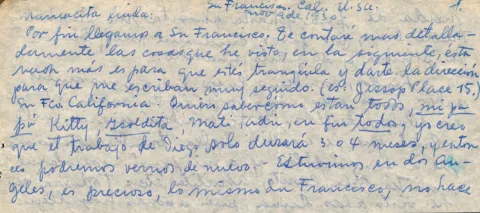 Sn Francisco. Cal. U.SU. 1.
Mamacita linda: nov 4 de 1930.
Por fin llegamos a Sn Francisco. Te contaré mas detalla-
damente las cosas que he visto, en la siguiente, ésta
nada más es para que estés tranquila y darte la dirección
para que me escriban muy seguido. (es: Jessop Place 15.)
Sn Fco. California. Quiero saber como estan todos, mi pa-
pá Kitty, Isoldita, Mati Adri, en fin todos, yo creo
que el trabajo de Diego solo durará 3 o 4 meses, y enton
ces podremos vernos de nuevo. - Estuvimos en Los An-
geles, es precioso, lo mismo Sn Francisco, no hace